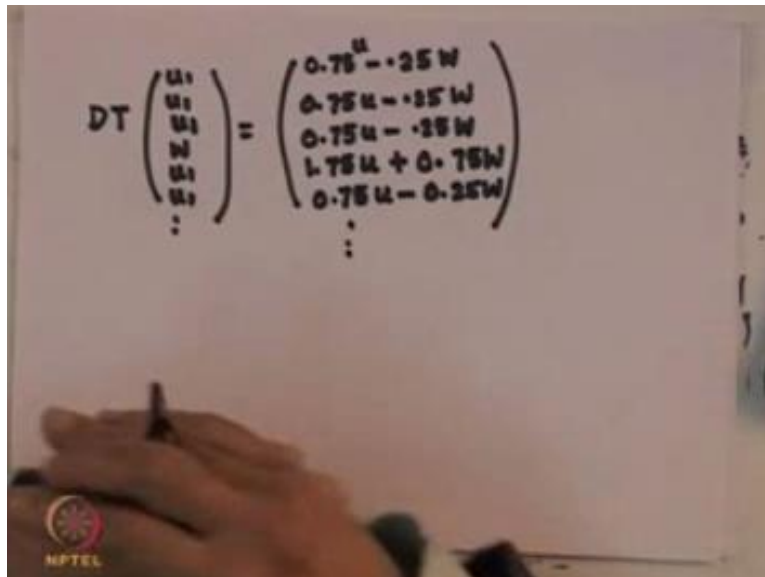 DT ( u₁ u₁ u₁ W u₁ u₁ ⋮ ) = ( 0.75u - .25W
0.75u - .25W
0.75u - .25W
1.75u + 0.75W
0.75u - 0.25W )
⋮
NPTEL